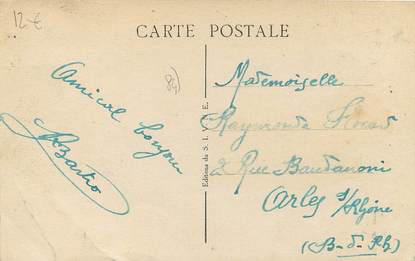 12-€
CARTE POSTALE
84)
Amical bonjour
Editions du S. I. V. E.
Mademoiselle
Raymonde
2 Rue Baudanoni
Arles s/Rhône
(B-d-Rh)